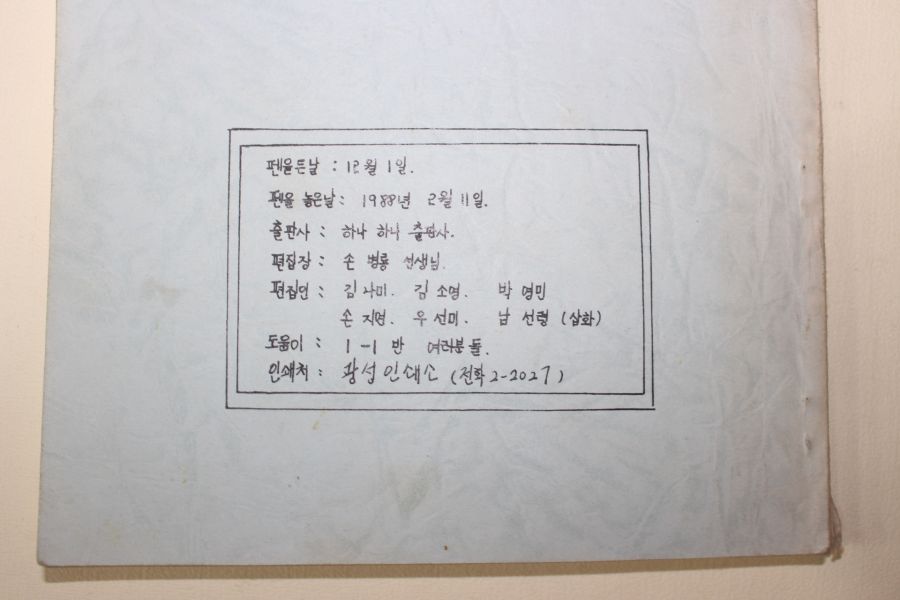 펜을든날 : 12월 1일.
펜을 놓은날 : 1988년 2월 11일.
출판사 : 하나 하나 출판사.
편집장 : 손 병룡 선생님.
편집인 : 김 나미. 김 소영. 박 영민
손 지연. 우 선미. 남 선령 (삽화)
도움이 : 1-1 반 여러분들.
인쇄처 : 광성인쇄소 (전화 2-2027)